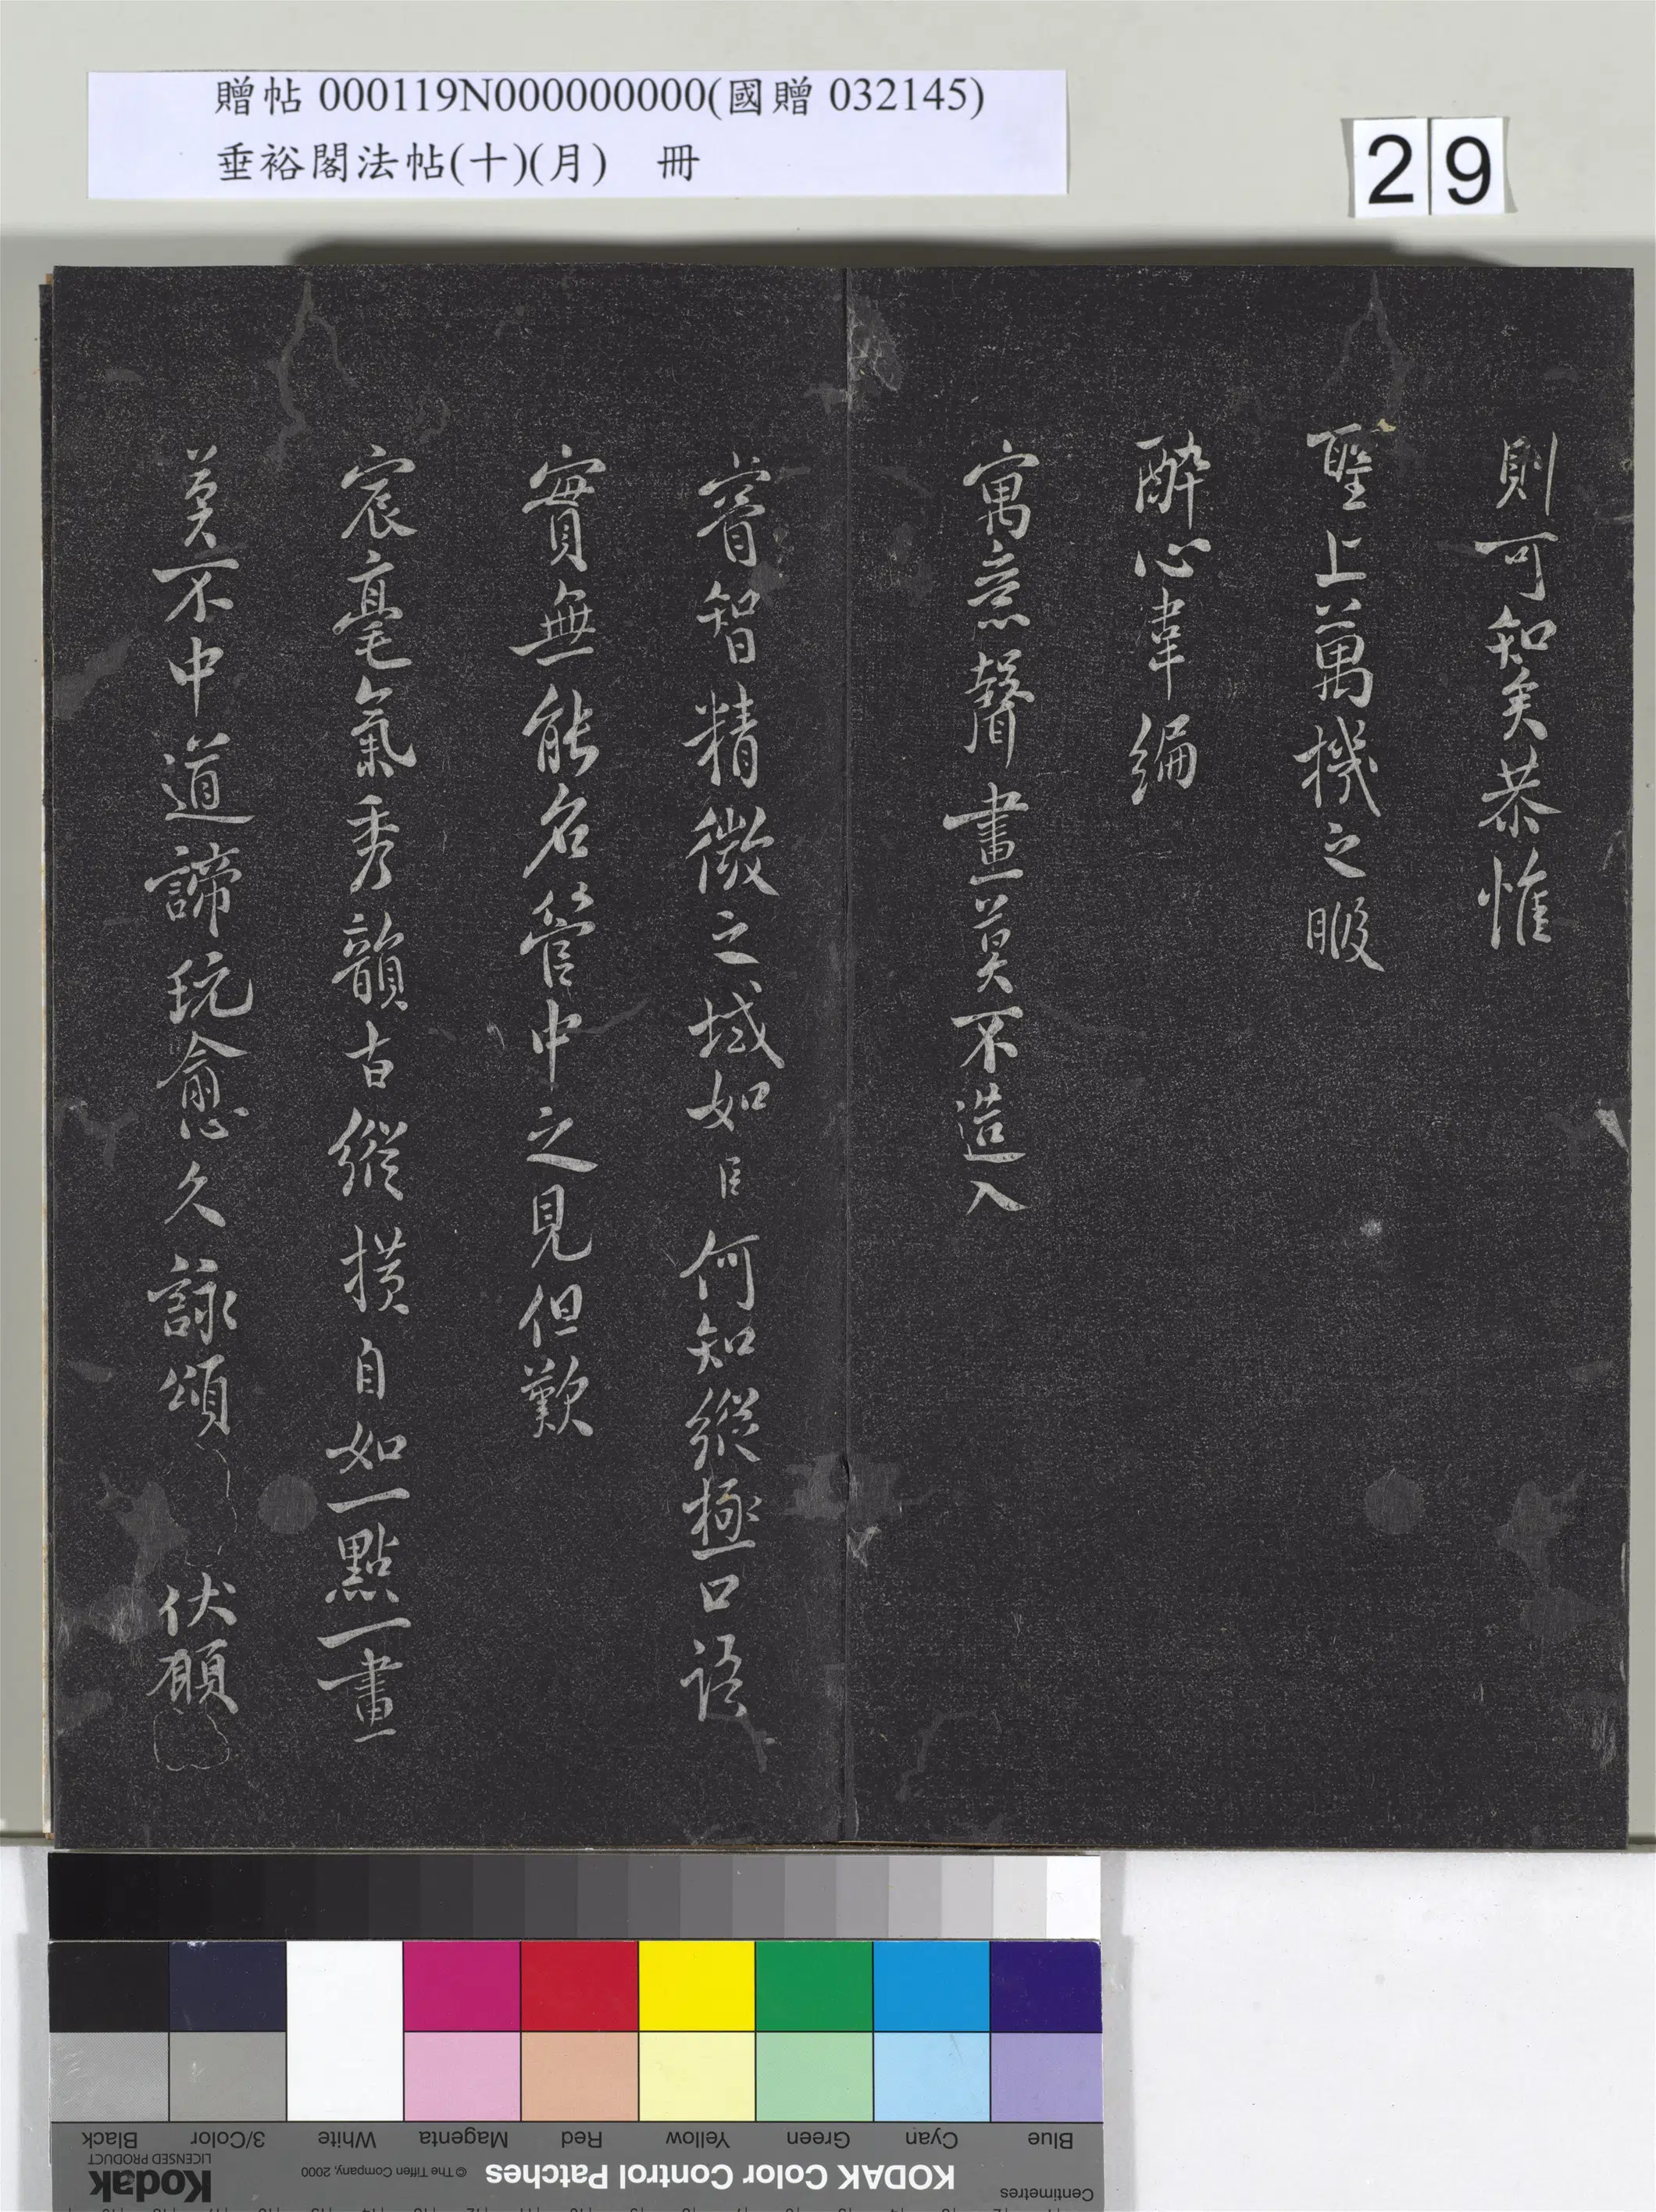 贈帖 000119N000000000(國贈 032145)
垂裕閣法帖(十)(月) 冊
29
則可知矣恭惟
聖上萬機之暇
酔心韋編
寓意聲畫莫不造入
睿智精微之域如臣何知縱極口語
實無能名管中之見但歎
宸毫氣秀韻古縱横自如一點一畫
莫不中道諦玩愈久詠頌
伏願
Blue
Cyan
Green
Yellow
Red
Magenta
White
3/Color
Black
Centimetres
KODAK Color Control Patches
© The Tiffen Company, 2000
Kodak
LICENSED PRODUCT